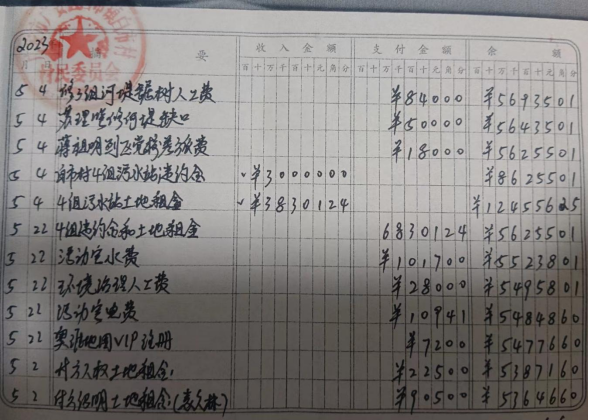 2023
村民委员会
月 日 要 收入金额 支付金额 余额
百十万千百十元角分 百十万千百十元角分 百十万千百十元角分
5 4 修3组河堤 树人工费 ¥84000 ¥5693501
5 4 清理 修河堤缺口 ¥50000 ¥5643501
5 4 蒋祖明到 差旅费 ¥18000 ¥5625501
5 4 村4组污水站违约金 ¥3000000 ¥8625501
5 4 4组污水站土地租金 ¥3830124 ¥12455625
5 22 4组违约金和土地租金 6830124 ¥5625501
5 22 活动室水费 ¥101700 ¥5523801
5 22 环境治理人工费 ¥28000 ¥5495801
5 22 活动室电费 ¥10941 ¥5484860
5 22 地图VIP注册 ¥7200 ¥5477660
5 2 付方 权土地租金 ¥22500 ¥5387160
5 2 付 明土地租金 ¥90500 ¥5364660